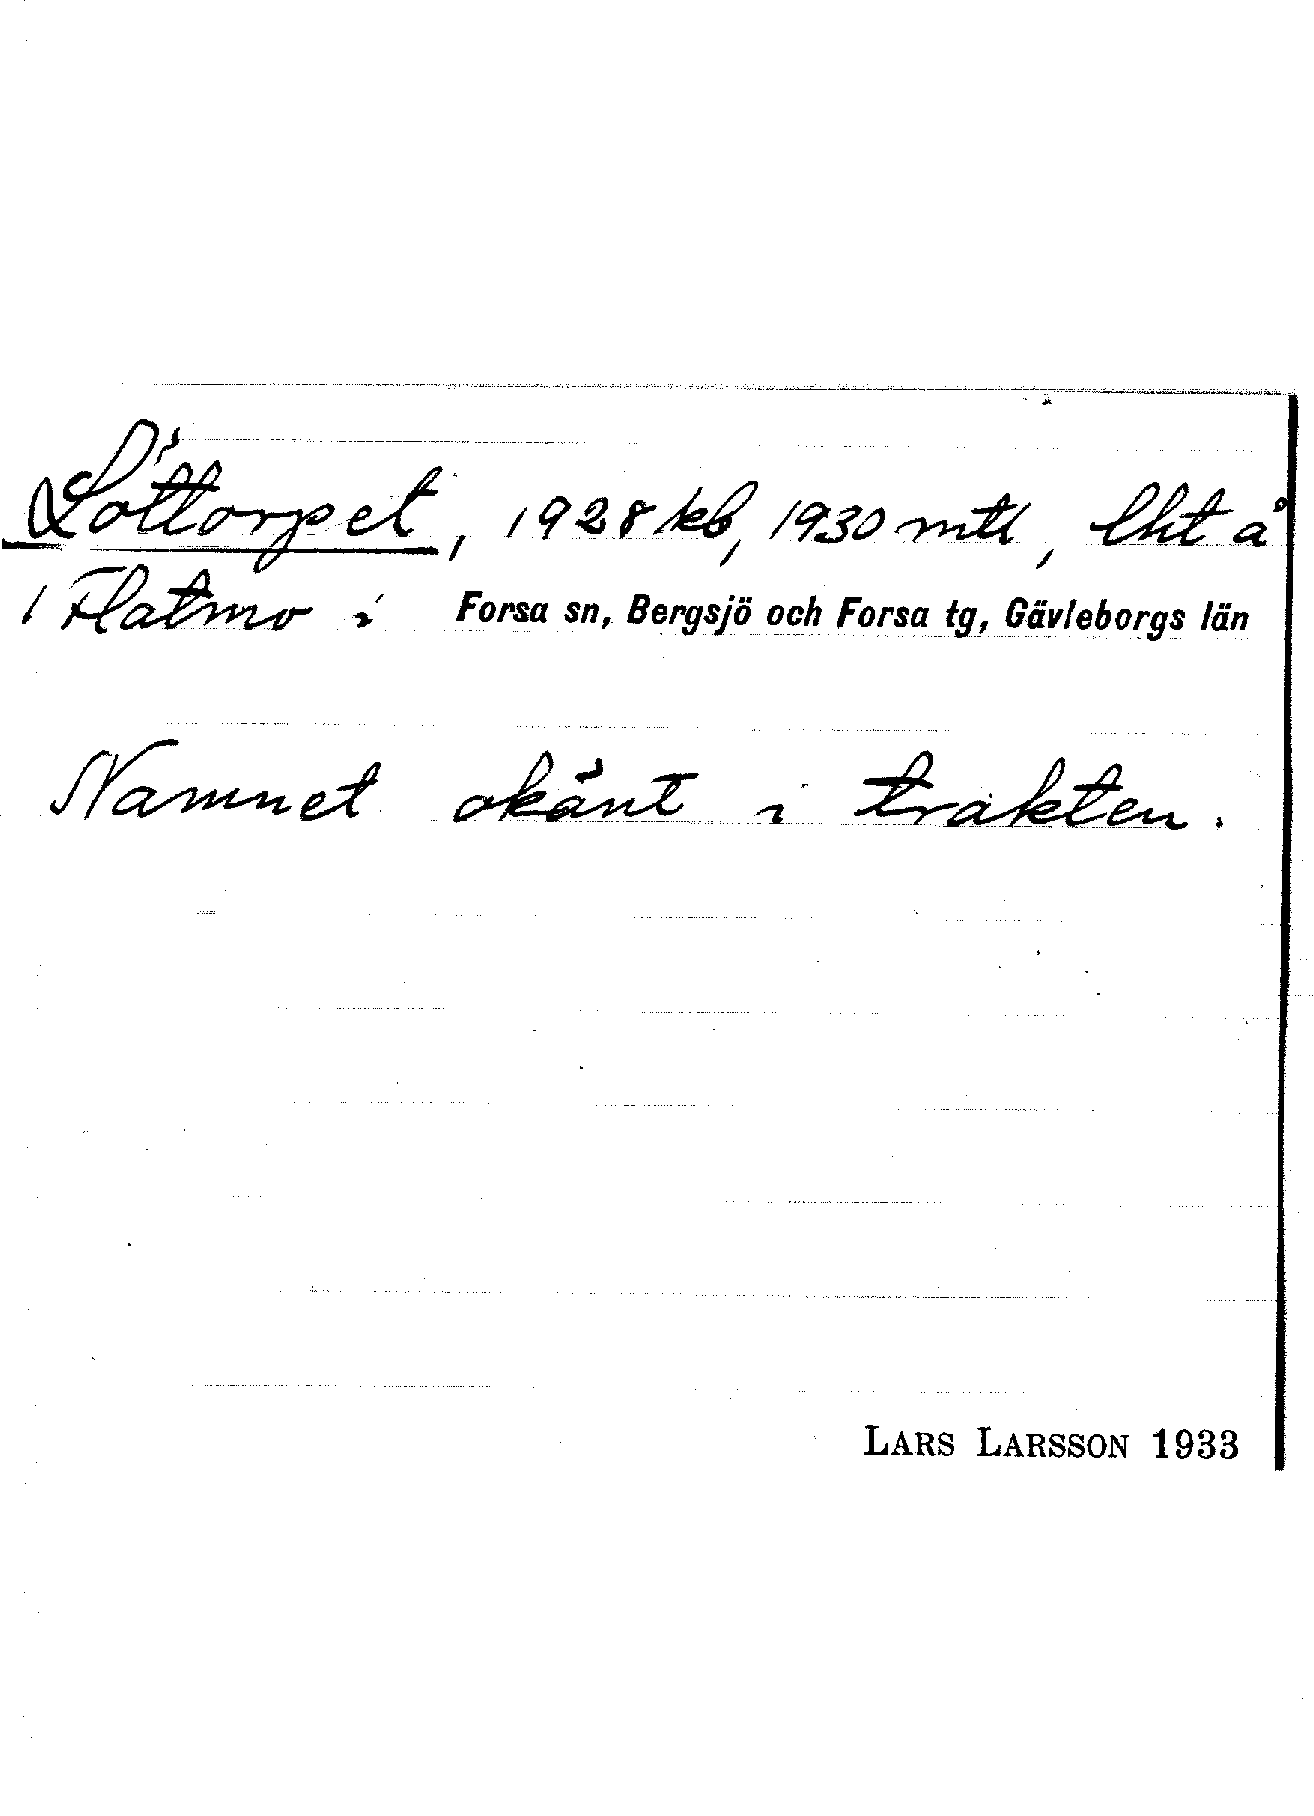 Löttorpet, 1928 kb, 1930 mtl, lht å
1 Flatmo i Forsa sn, Bergsjö och Forsa tg, Gävleborgs län
Namnet okänt i trakten.
LARS LARSSON 1933